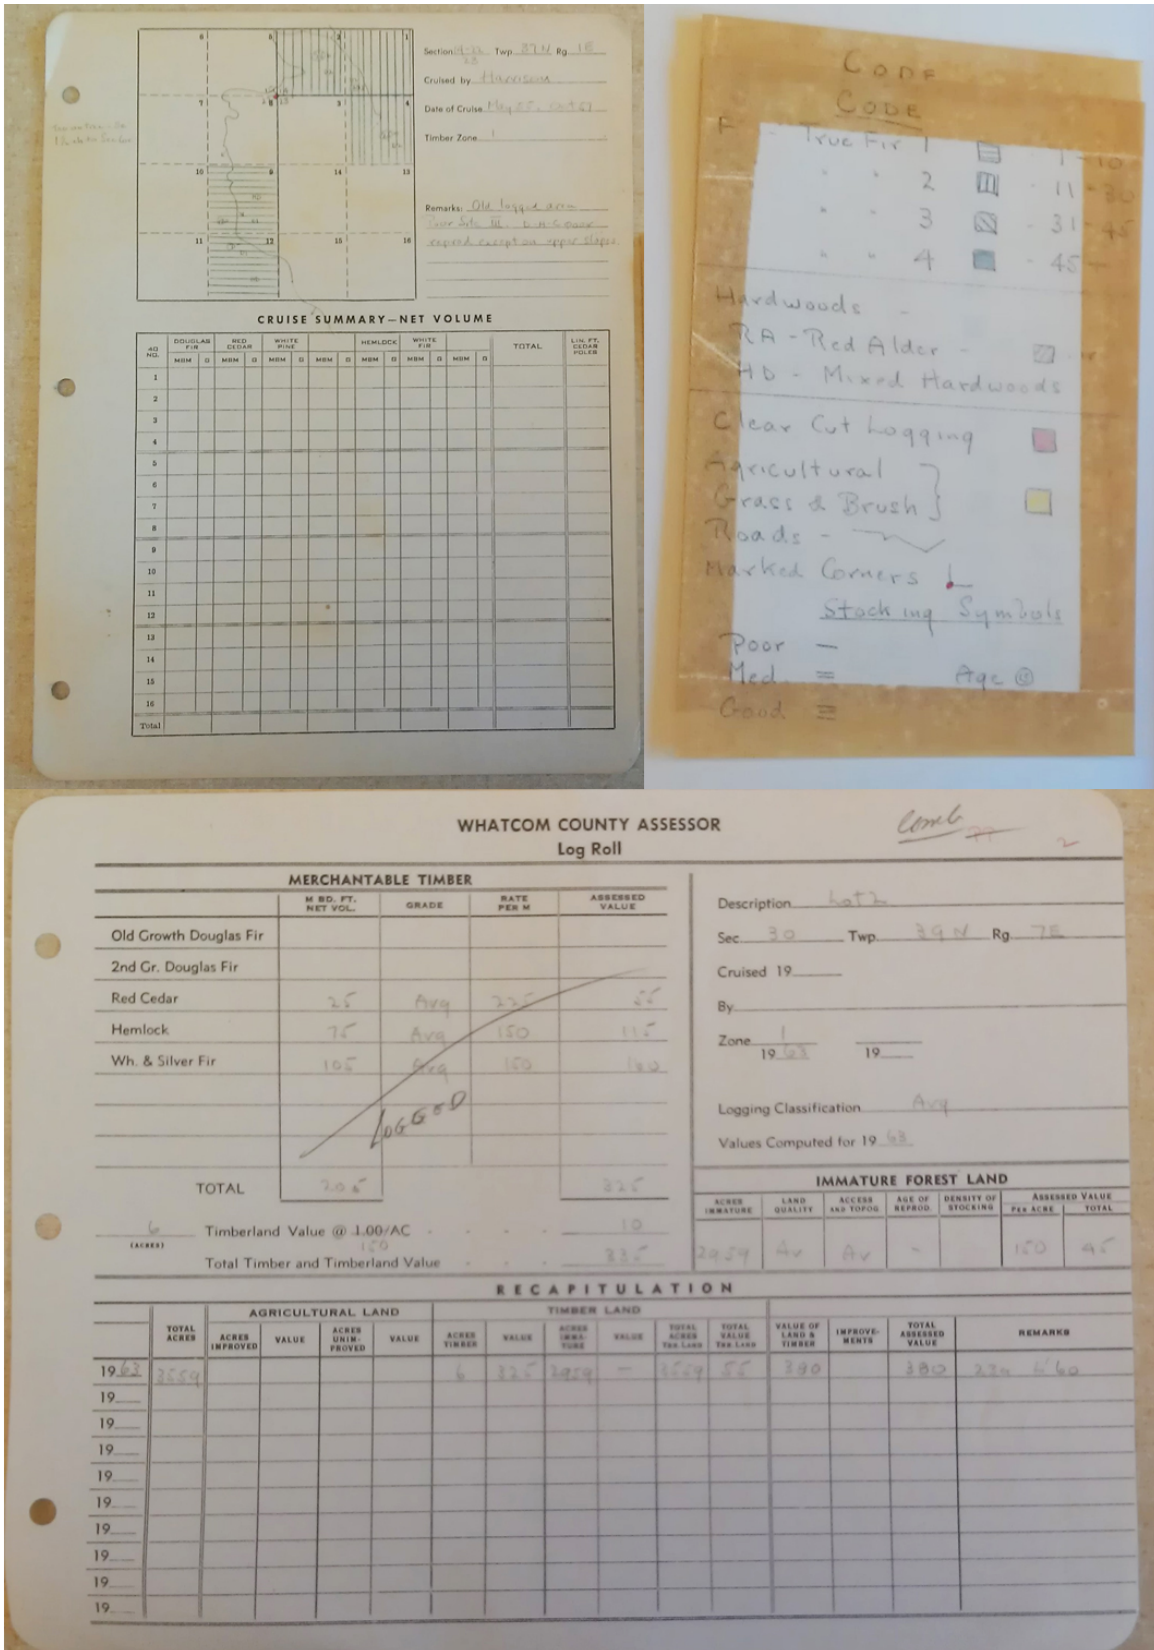 6 5 2 1
7 8 3 4
10 9 14 13
11 12 15 16
Section 14-22 Twp. 37N Rg. 1E
23
Cruised by Harrison
Date of Cruise May 55, Oct 57
Timber Zone 1
Remarks: Old logged area
Poor Site III.
expired except on upper slopes
CRUISE SUMMARY—NET VOLUME
40 NO. DOUGLAS FIR RED CEDAR WHITE PINE HEMLOCK WHITE FIR TOTAL LIN. FT. CEDAR POLES
MBM G MBM G MBM G MBM G MBM G MBM G MBM G
1
2
3
4
5
6
7
8
9
10
11
12
13
14
15
16
Total
CODE
CODE
F - True Fir 1 1-10
" " 2 - 11-30
" " 3 - 31-45
" " 4 - 45-
Hardwoods -
RA - Red Alder -
HD - Mixed Hardwoods
Clear Cut Logging
Agricultural
Grass & Brush
Roads -
Marked Corners
Stocking Symbols
Poor —
Med. = Age
Good ≡
WHATCOM COUNTY ASSESSOR
Log Roll
Comb 77 2
MERCHANTABLE TIMBER
M BD. FT. NET VOL. GRADE RATE PER M ASSESSED VALUE
Old Growth Douglas Fir
2nd Gr. Douglas Fir
Red Cedar 25 Avg 225 55
Hemlock 75 Avg 150 115
Wh. & Silver Fir 105 Avg 150
LOGGED
TOTAL 205 325
6 Timberland Value @ 1.00/AC 10
(ACRES) 150
Total Timber and Timberland Value 335
Description Lot 2
Sec. 30 Twp. 39N Rg. 7E
Cruised 19
By
Zone 1
19 63 19
Logging Classification Avg
Values Computed for 19 63
IMMATURE FOREST LAND
ACRES IMMATURE LAND QUALITY ACCESS AND TOPOG. AGE OF REPROD. DENSITY OF STOCKING ASSESSED VALUE
PER ACRE TOTAL
2959 Av Av - 150 45
RECAPITULATION
TOTAL ACRES AGRICULTURAL LAND TIMBER LAND
ACRES IMPROVED VALUE ACRES UNIMPROVED VALUE ACRES TIMBER VALUE ACRES IMMATURE VALUE TOTAL ACRES TBR LAND TOTAL VALUE TBR LAND VALUE OF LAND & TIMBER IMPROVEMENTS TOTAL ASSESSED VALUE REMARKS
19 63 3559 6 325 2959 — 3559 55 380 380
19
19
19
19
19
19
19
19
19